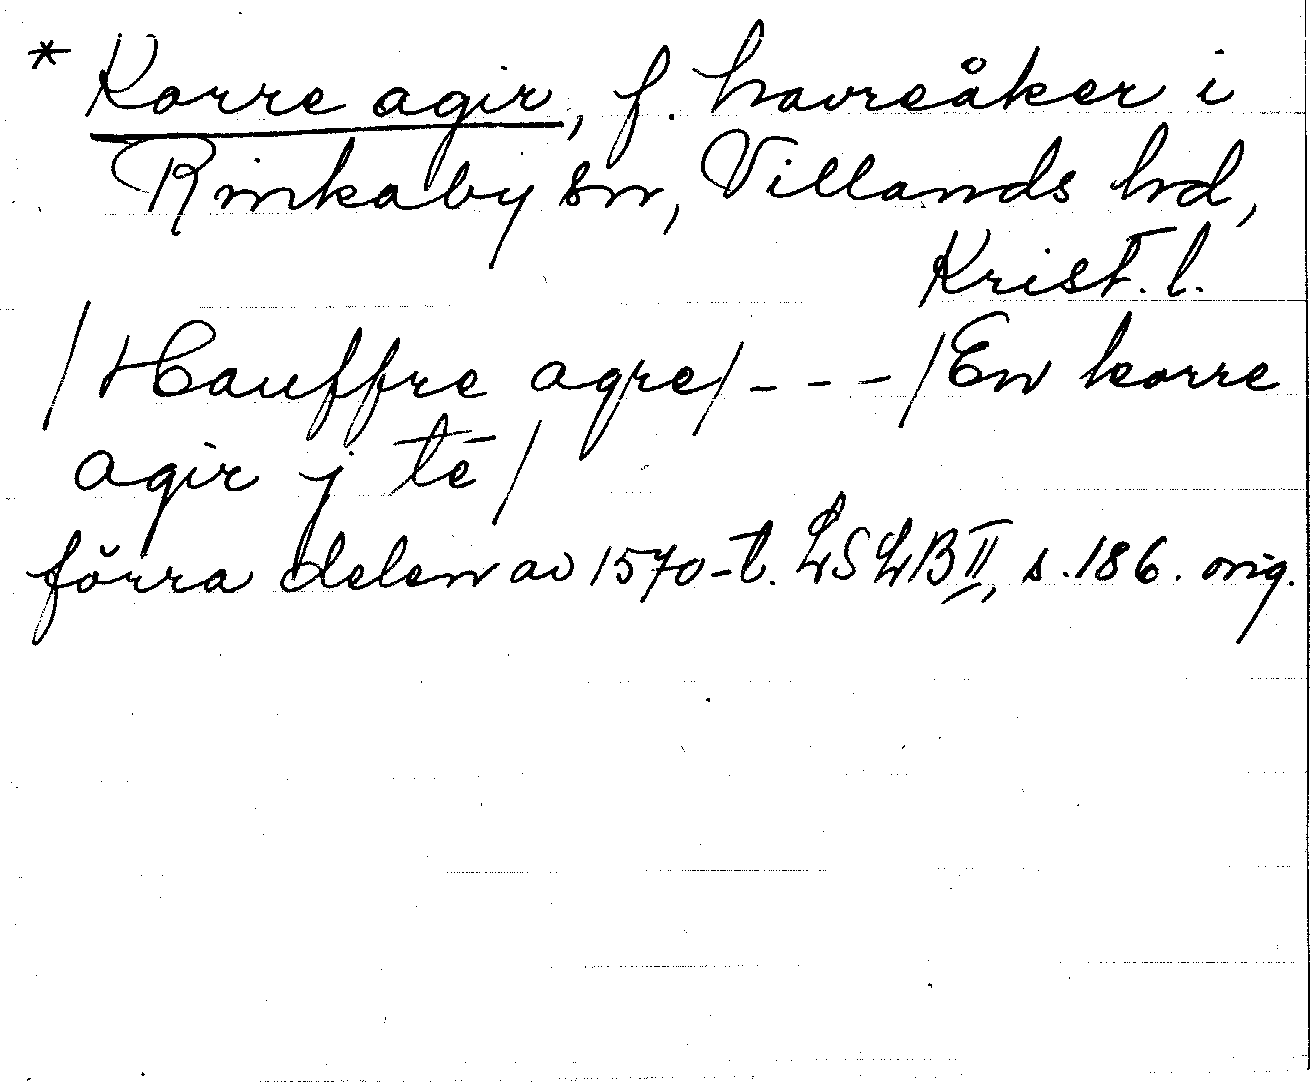 * Korre agir, f. havreåker i
Rinkaby sn, Villands hd,
Krist. l.
/Hauffre agre/ - - - /En korre
agir j tē/
förra delen av 1570-t. LSLB II, s. 186. orig.